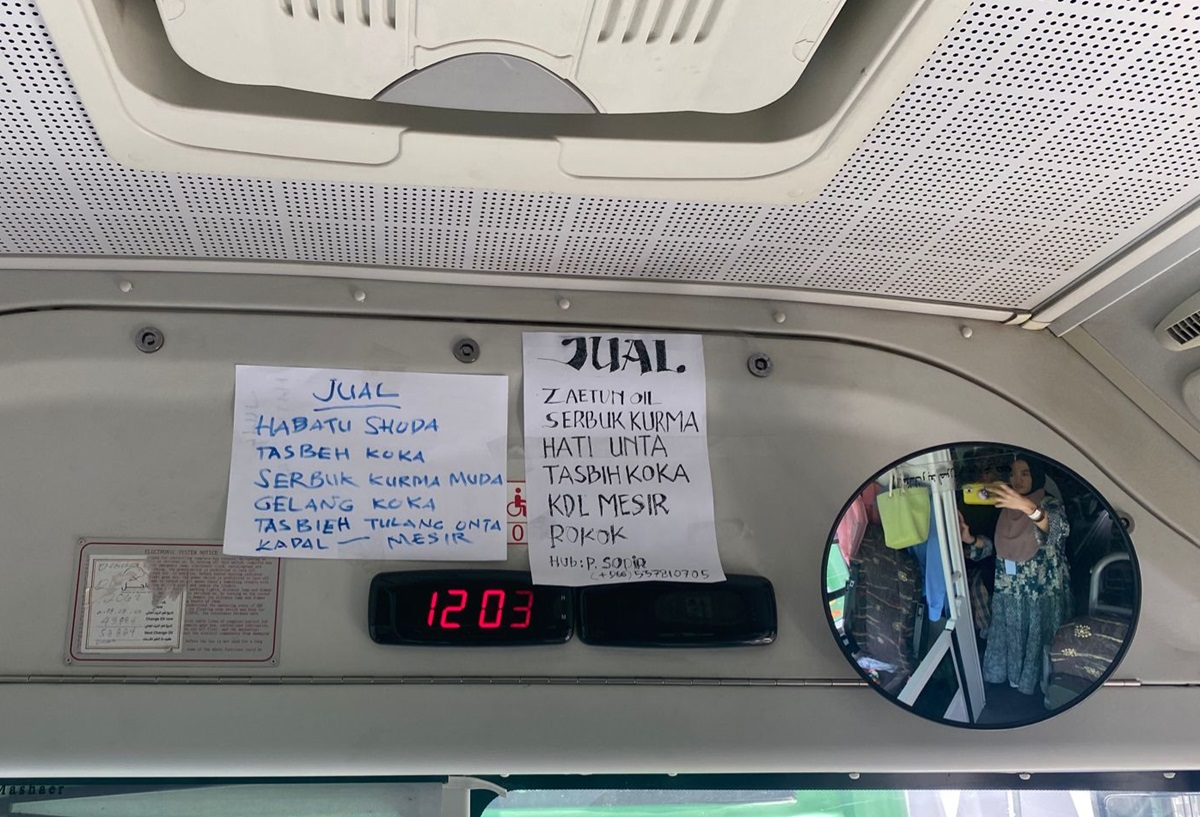 JUAL
HABATU SHODA
TASBEH KOKA
SERBUK KURMA MUDA
GELANG KOKA
TASBIEH TULANG ONTA
KAPAL — MESIR
JUAL.
ZAETUN OIL
SERBUK KURMA
HATI UNTA
TASBIH KOKA
KDL MESIR
ROKOK
HUB: P. SODIR
(+966) 557810705
12 03
ELECTRONIC SYSTEM NOTICE
Change Oil
Next Change Oil
Mashaer